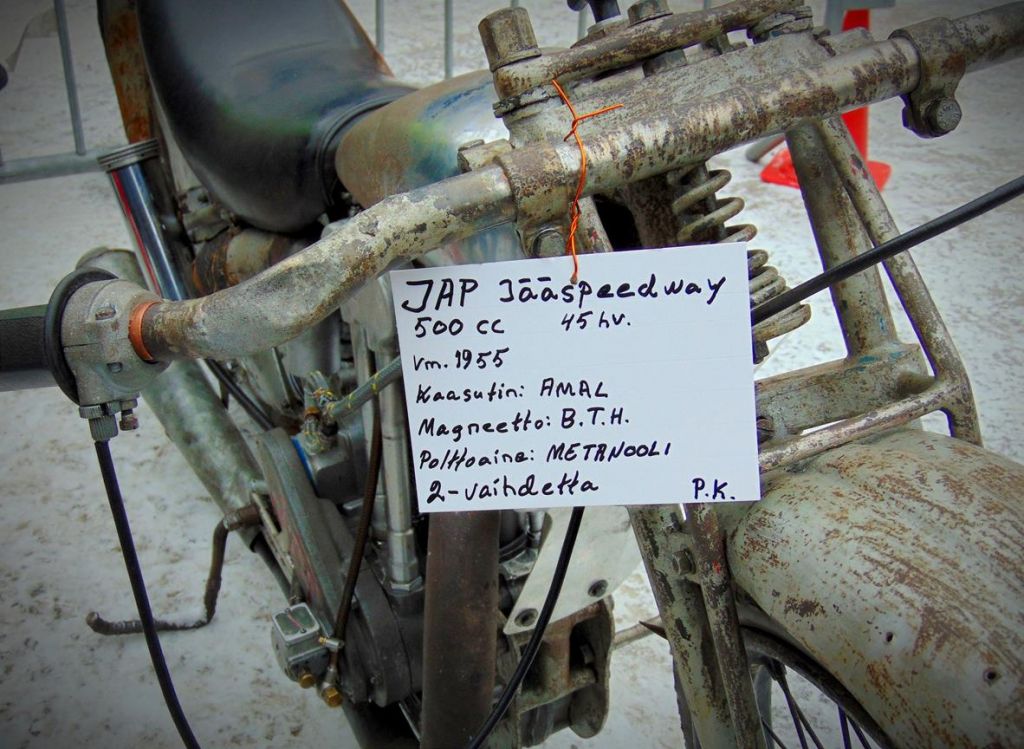 JAP Jääspeedway
500 cc 45 hv.
vm. 1955
Kaasutin: AMAL
Magneetto: B.T.H.
Polttoaine: METANOOLI
2-vaihdetta P.K.